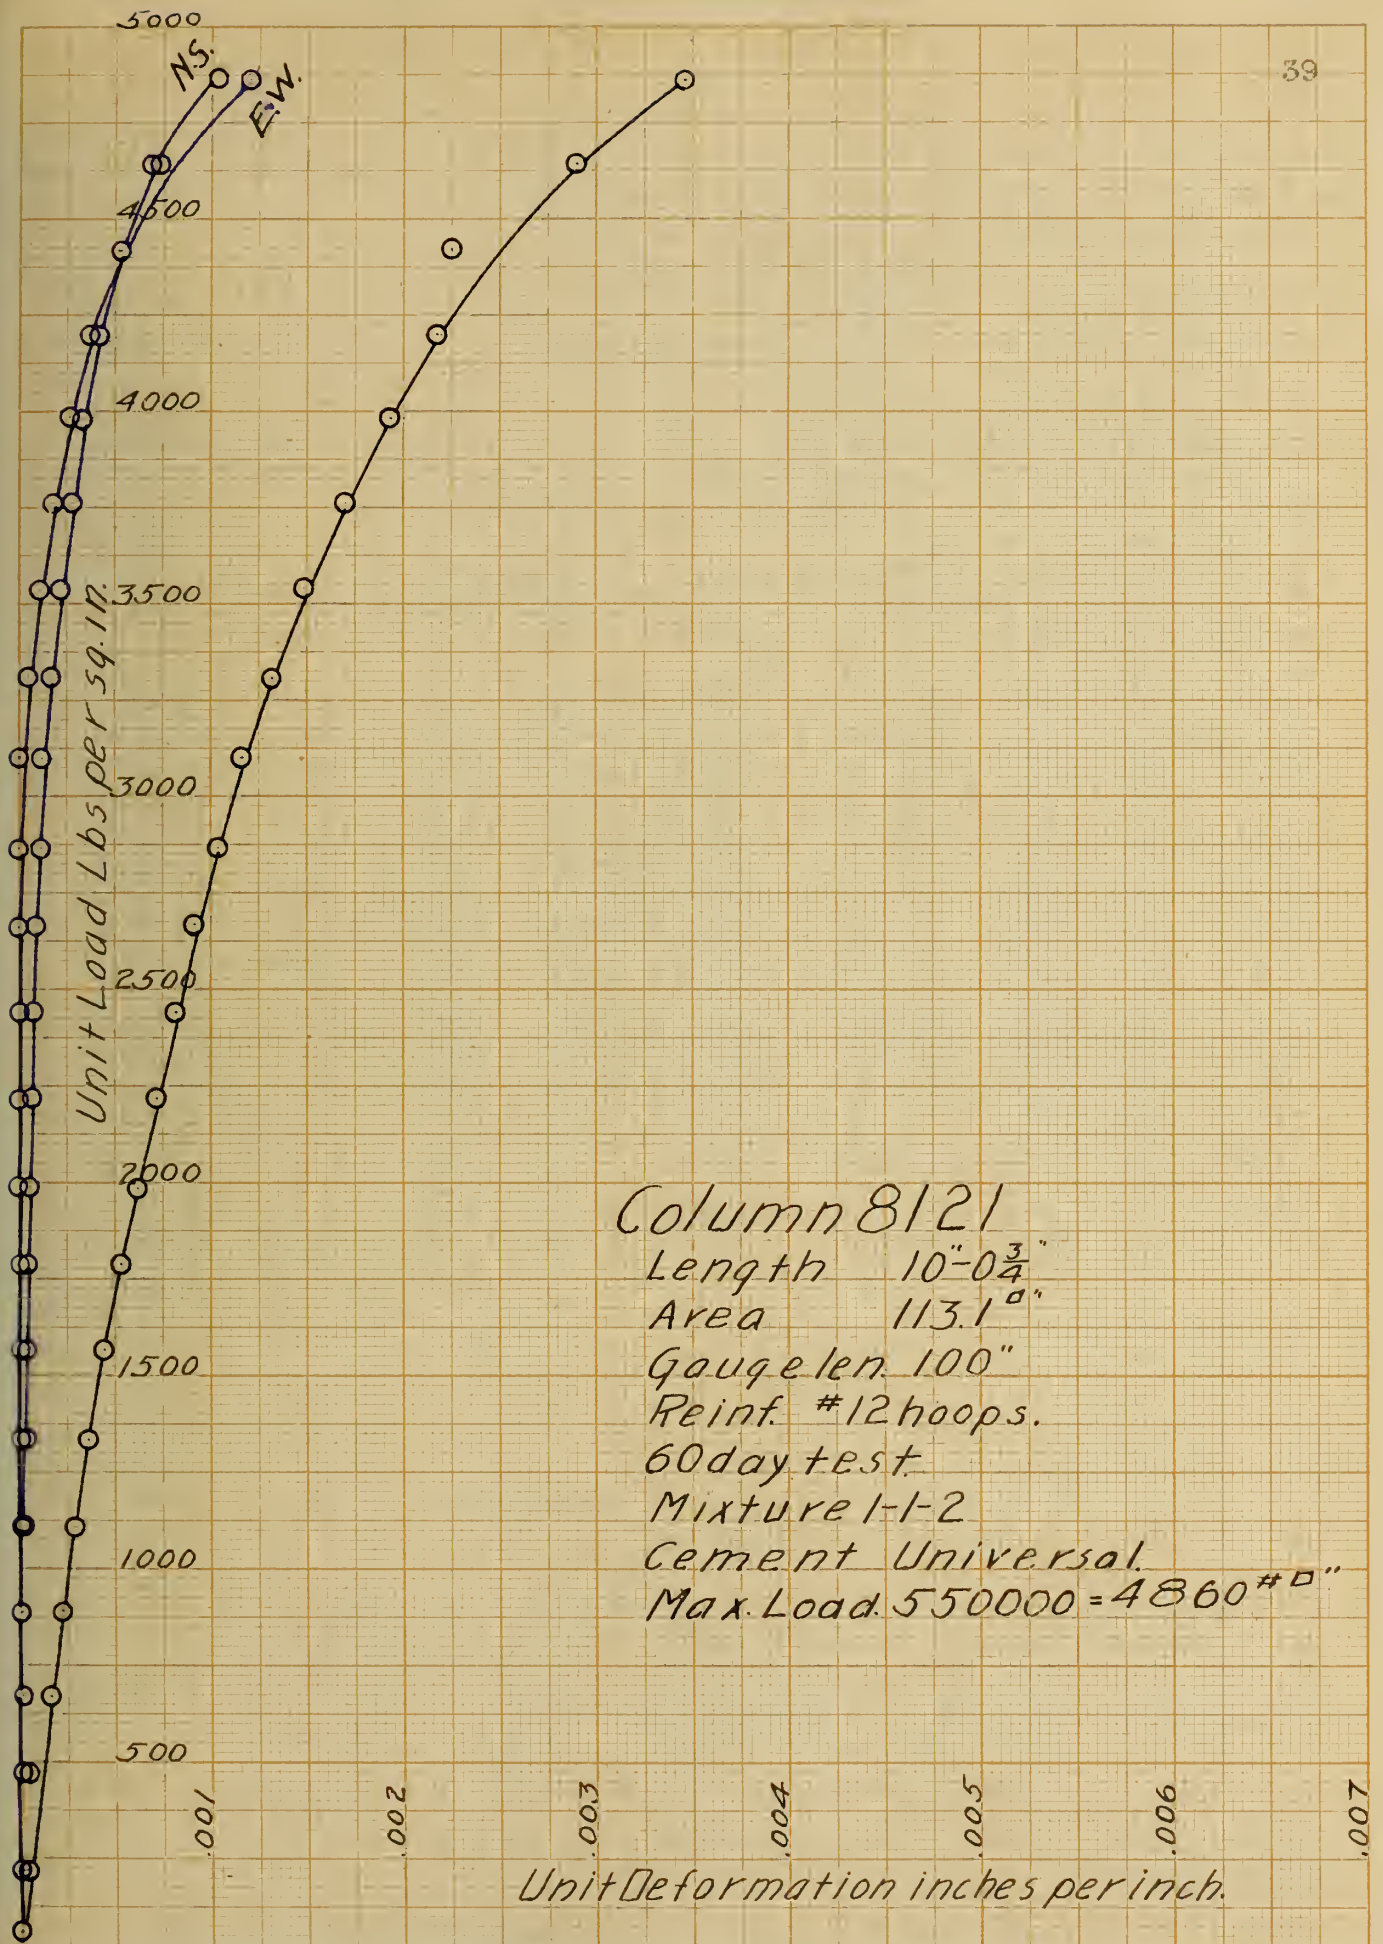 39
5000
N.S.
E.W.
4500
4000
3500
3000
2500
2000
1500
1000
500
Unit Load Lbs per sq. in.
Column 8121
Length 10"-0 3/4"
Area 113.1 □"
Gauge len. 100"
Reinf. #12 hoops.
60 day test
Mixture 1-1-2
Cement Universal.
Max. Load. 550000 = 4860 # □"
.001 .002 .003 .004 .005 .006 .007
Unit Deformation inches per inch.